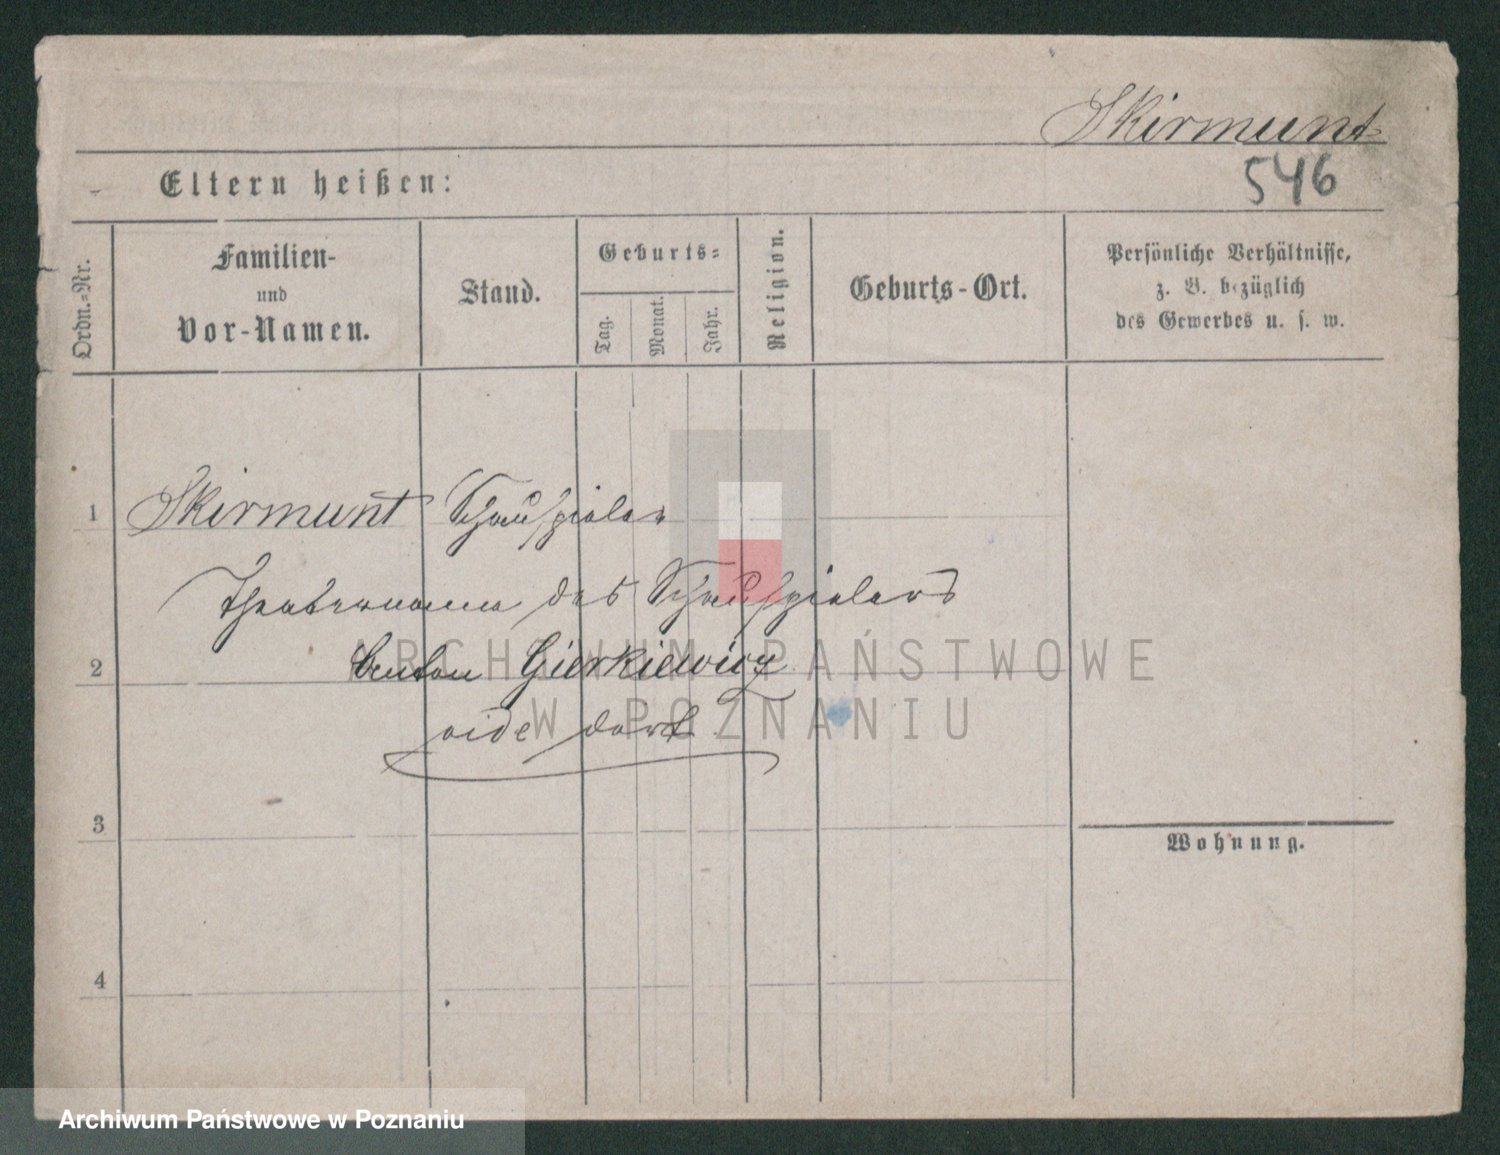 Skirmunt
546
Eltern heißen:
Ordn.-Nr.
Familien-
und
Vor-Namen.
Stand.
Geburts-
Tag.
Monat.
Jahr.
Religion.
Geburts-Ort.
Persönliche Verhältnisse,
z. B. bezüglich
des Gewerbes u. s. w.
1 Skirmunt Schauspieler
Theatername des Schauspielers
2 Gierkiewicz
vide dort
3
Wohnung.
4
ARCHIWUM PAŃSTWOWE
W POZNANIU
Archiwum Państwowe w Poznaniu